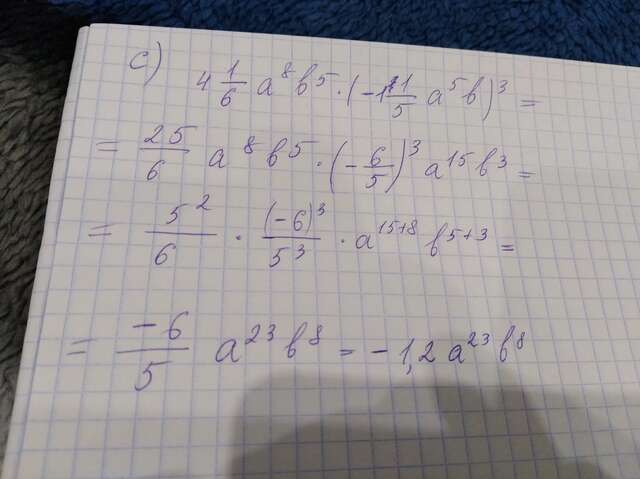 c) 4 1/6 a⁸b⁵ · (-1 1/5 a⁵b)³ =
= 25/6 a⁸b⁵ · (-6/5)³ a¹⁵b³ =
= 5²/6 · (-6)³/5³ · a¹⁵⁺⁸ b⁵⁺³ =
= -6/5 a²³b⁸ = -1,2 a²³b⁸